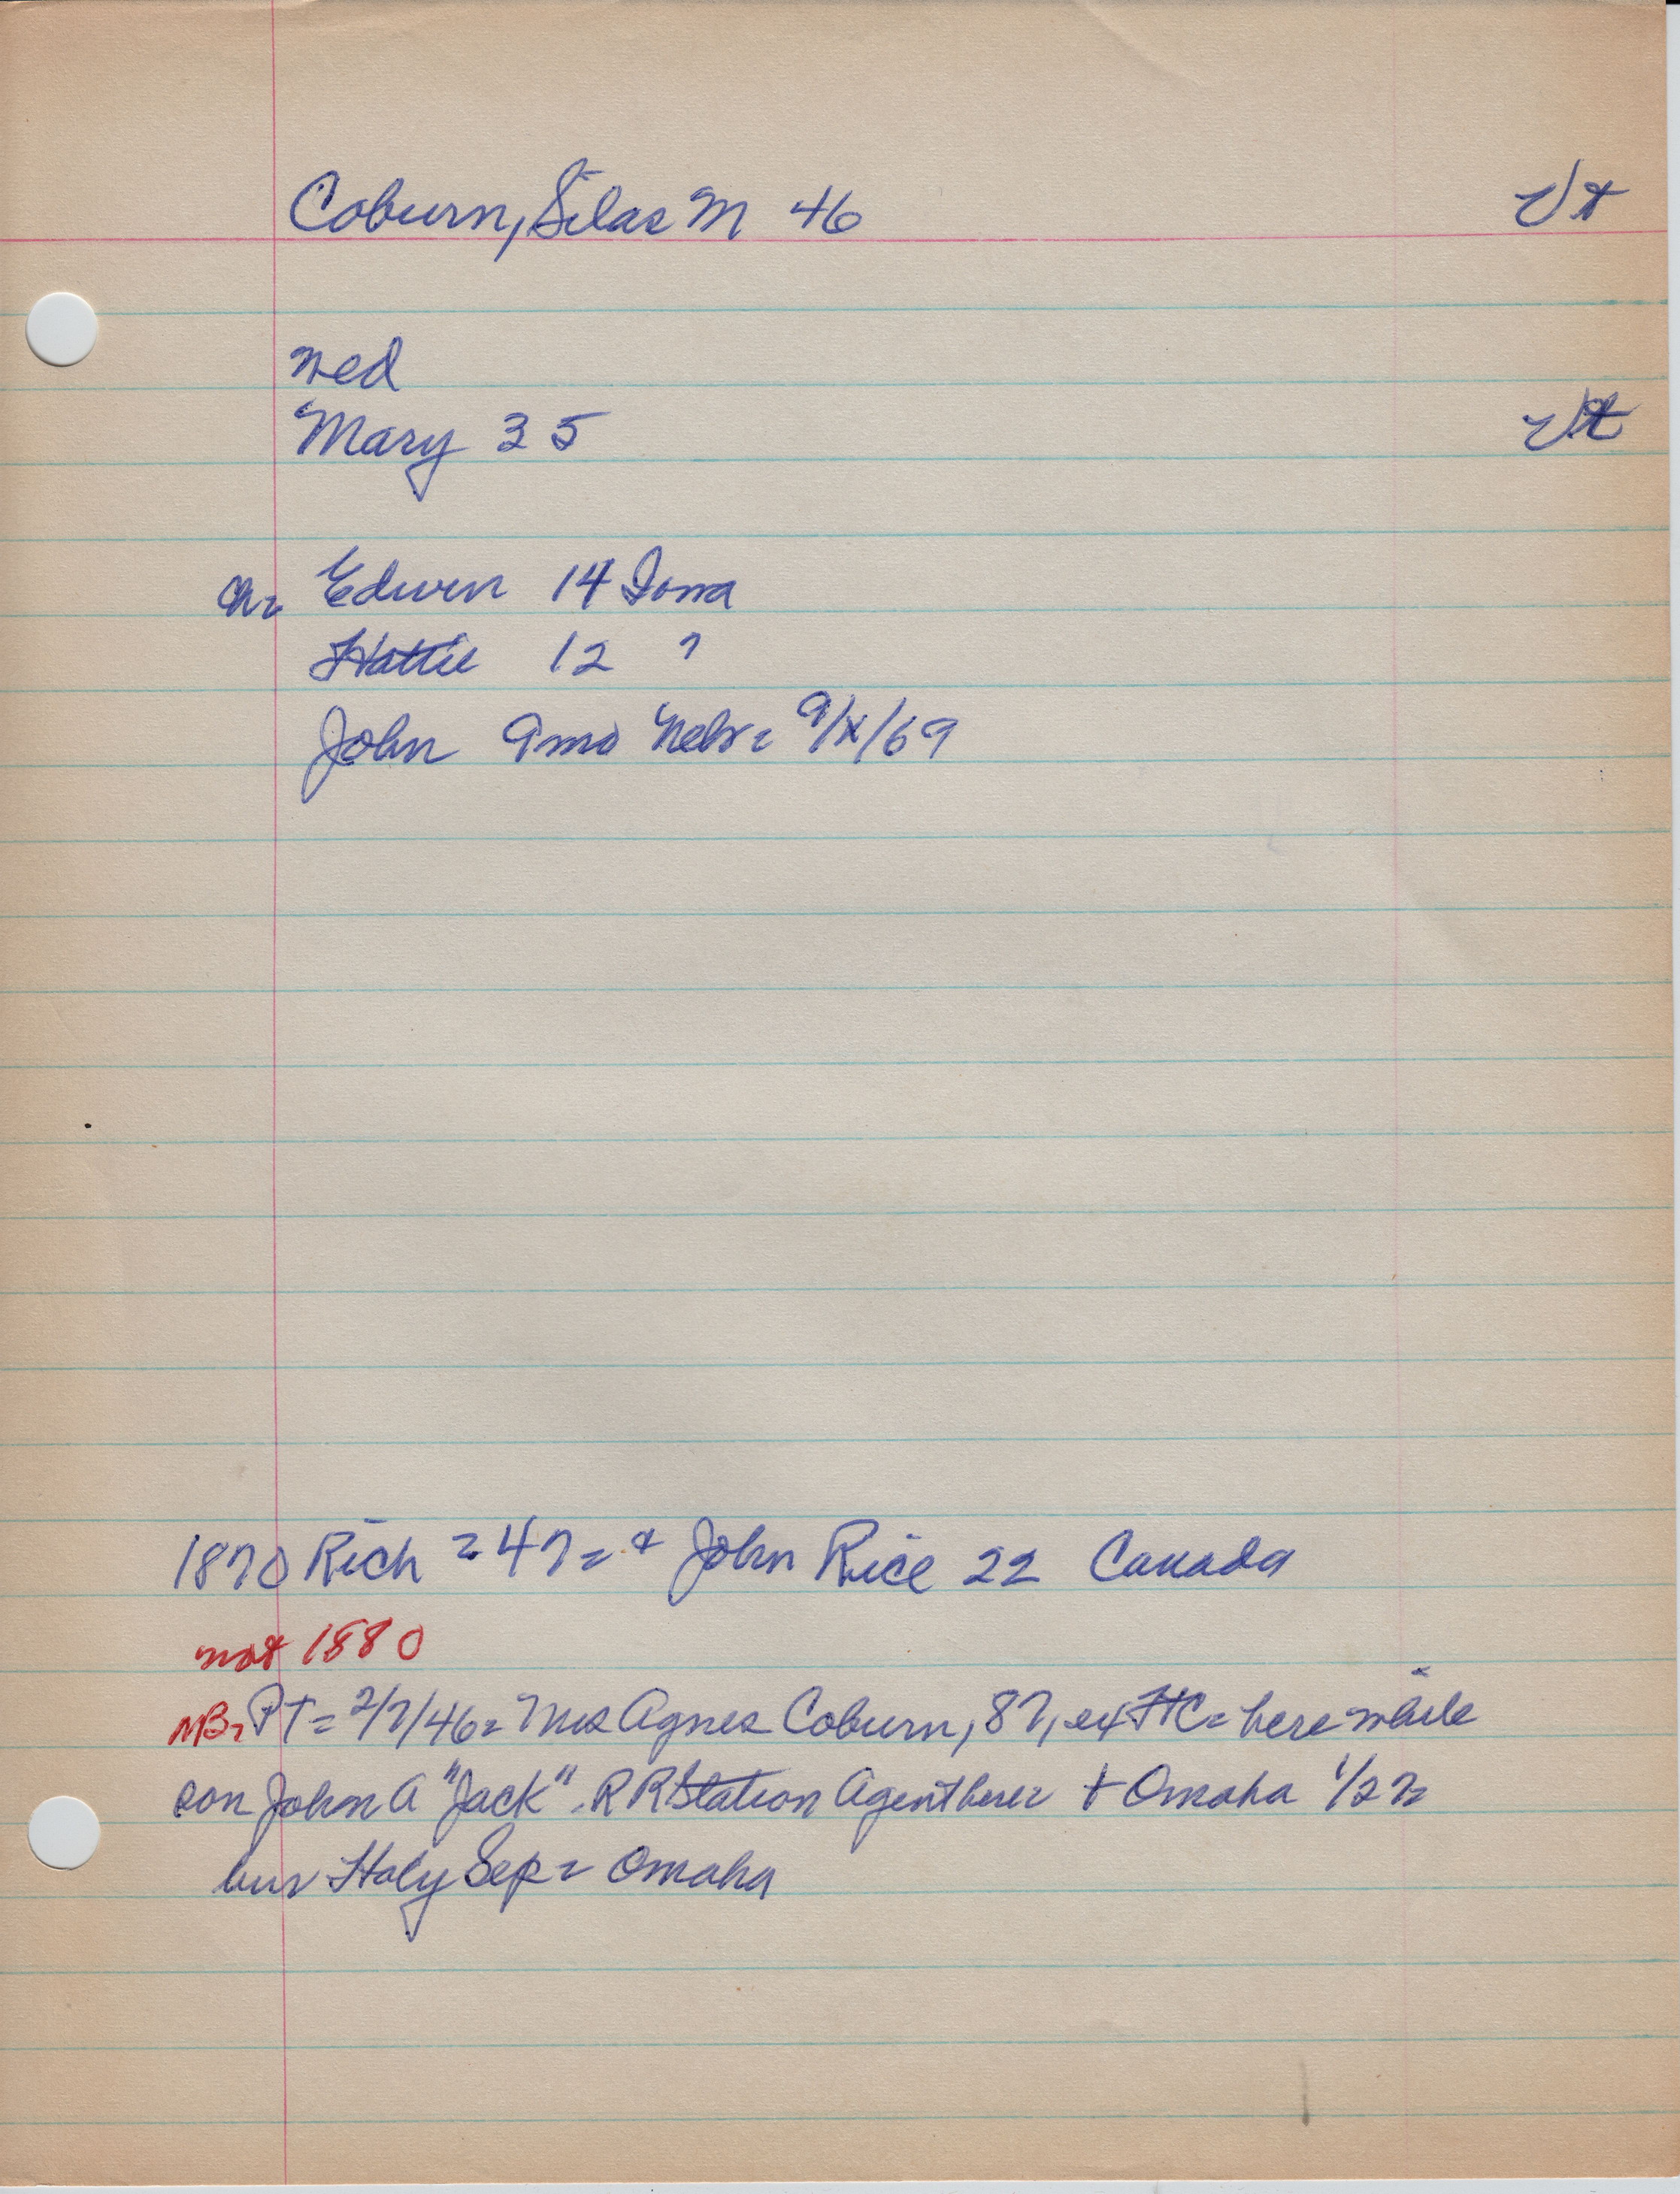 Coburn, Silas M 46 Vt
wed
Mary 35 Vt
Ch= Edwin 14 Iowa
Hattie 12 "
John 9mo Nebr= 9/x/69
1870 Rich = 47= + John Rice 22 Canada
not 1880
NB= PT= 2/7/46= Mrs Agnes Coburn, 87, ex FtC= here while
son John A "Jack". RR Station Agent here= + Omaha 1/27=
bur Holy Sep= Omaha